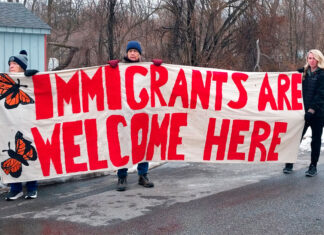 IMMIGRANTS ARE
WELCOME HERE